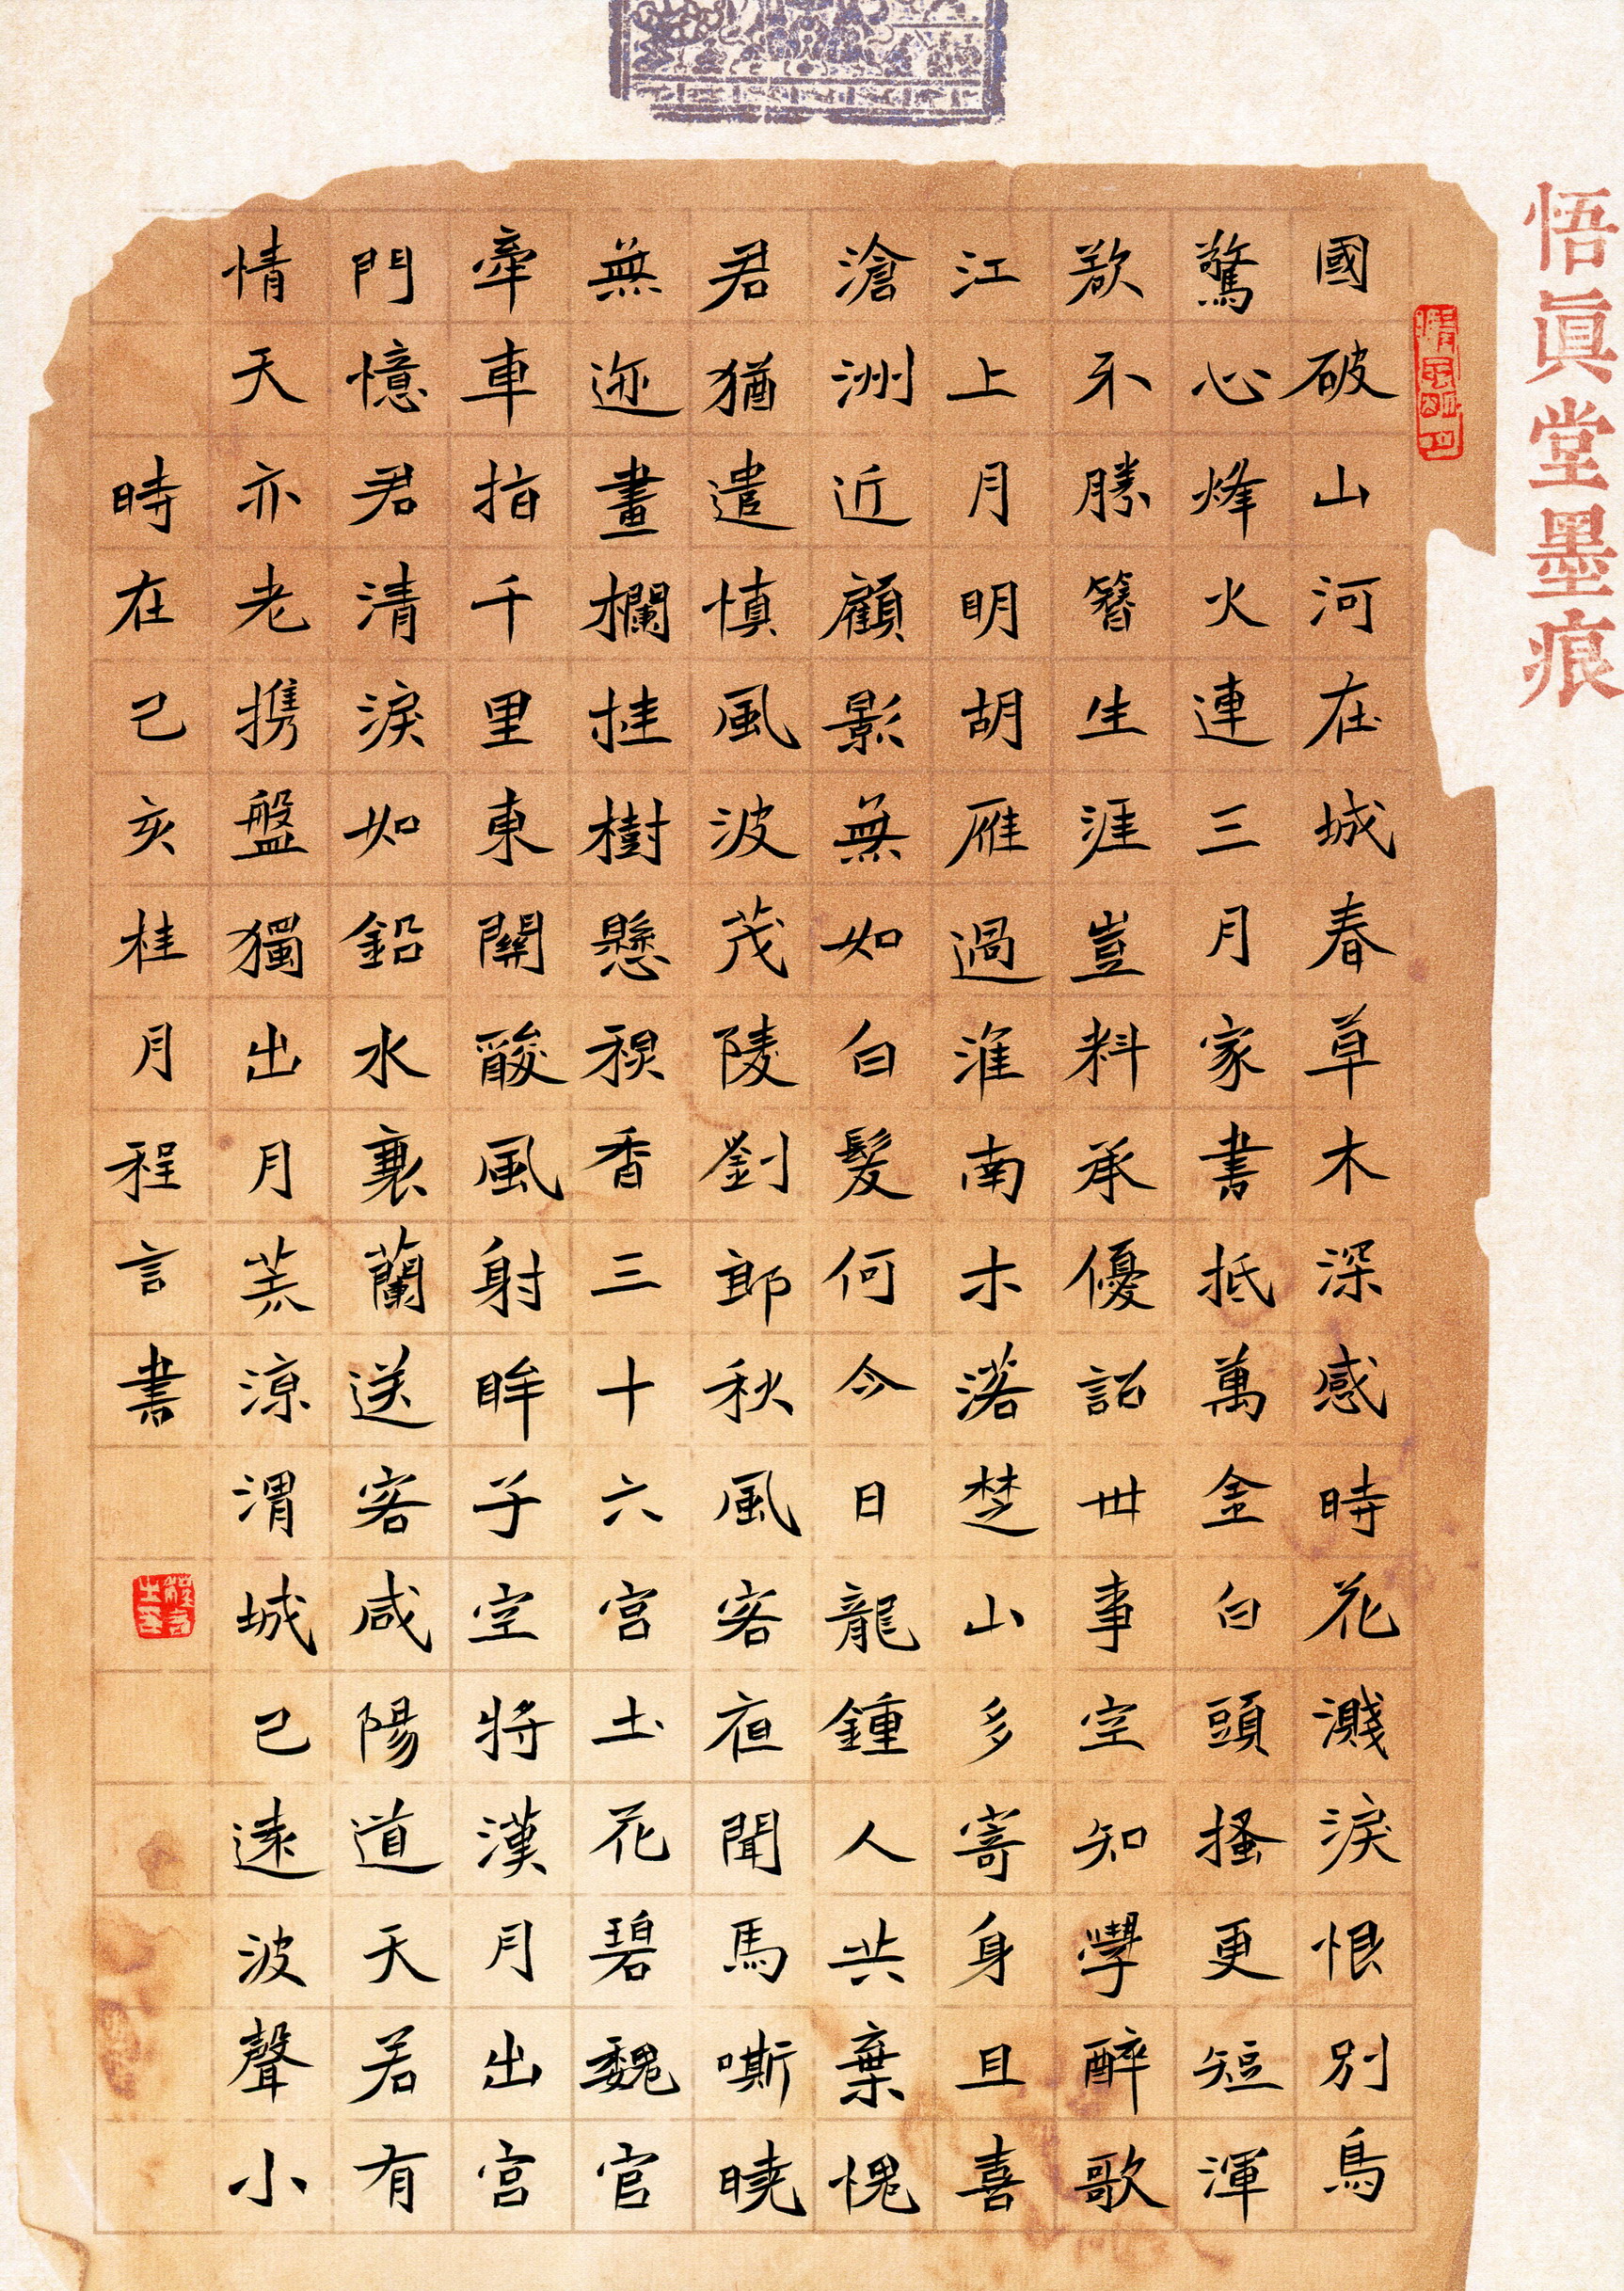 悟眞堂墨痕
國破山河在城春草木深感時花濺淚恨別鳥
驚心烽火連三月家書抵萬金白頭搔更短渾
欲不勝簪生涯豈料承優詔世事空知學醉歌
江上月明胡雁過淮南木落楚山多寄身且喜
滄洲近顧影無如白髮何今日龍鍾人共棄愧
君猶遣慎風波茂陵劉郎秋風客夜聞馬嘶曉
無迹畫欄挂樹懸秋香三十六宮土花碧魏官
牽車指千里東關酸風射眸子空將漢月出宮
門憶君清淚如鉛水衰蘭送客咸陽道天若有
情天亦老携盤獨出月荒涼渭城已遠波聲小
時在己亥桂月程言書